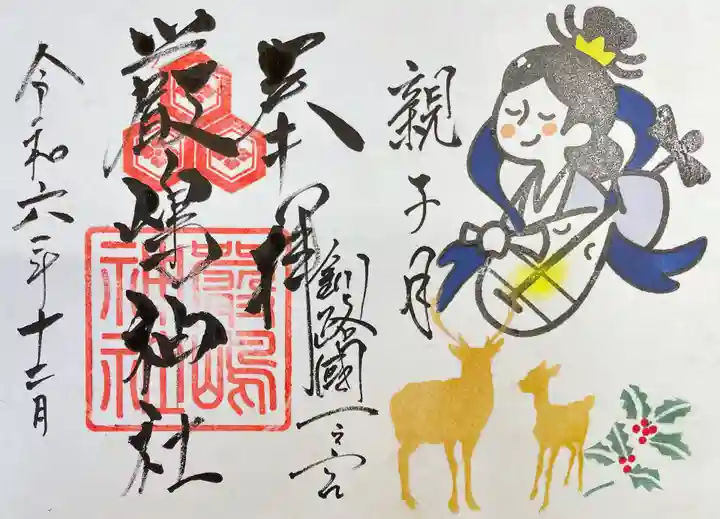 親子月
奉拝
釧路國一之宮
厳嶋神社
嚴嶋
神社
令和六年十二月